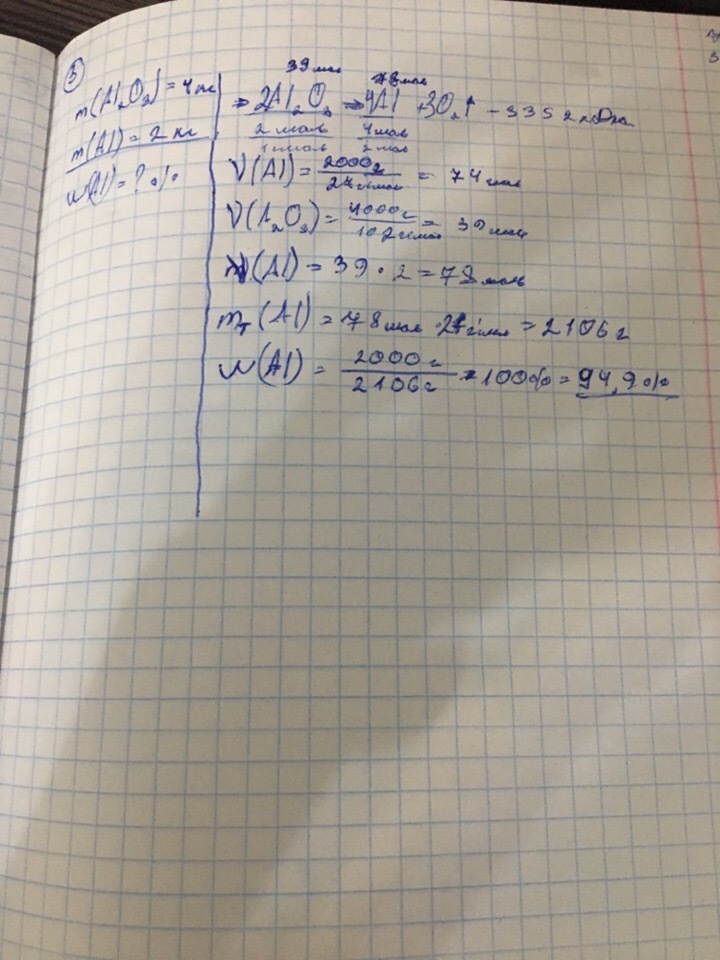 3
m(Al₂O₃) = 4 кг
m(Al) = 2 кг
w(Al) = ? %
39 моль 78 моль
2Al₂O₃ → 4Al + 3O₂↑ - 3352 кДж
2 моль 4 моль
1 моль 2 моль
ν(Al) = 2000г / 27 г/моль = 74 моль
ν(Al₂O₃) = 4000г / 102 г/моль = 39 моль
ν(Al) = 39 · 2 = 78 моль
mт(Al) = 78 моль · 27 г/моль = 2106 г
w(Al) = 2000 г / 2106 г · 100% = 94,9%